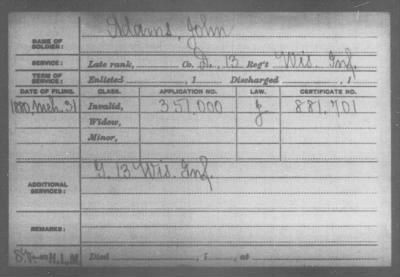 NAME OF SOLDIER: Adams, John
SERVICE: Late rank, Co. D, 13 Reg't Wis. Inf.
TERM OF SERVICE: Enlisted , 1 Discharged , 1
DATE OF FILING. CLASS. APPLICATION NO. LAW. CERTIFICATE NO.
1880, Mch. 31 Invalid, 351,000 881,701
Widow,
Minor,
ADDITIONAL SERVICES: G. 13 Wis. Inf.
REMARKS:
H.L.M Died , 1 , at